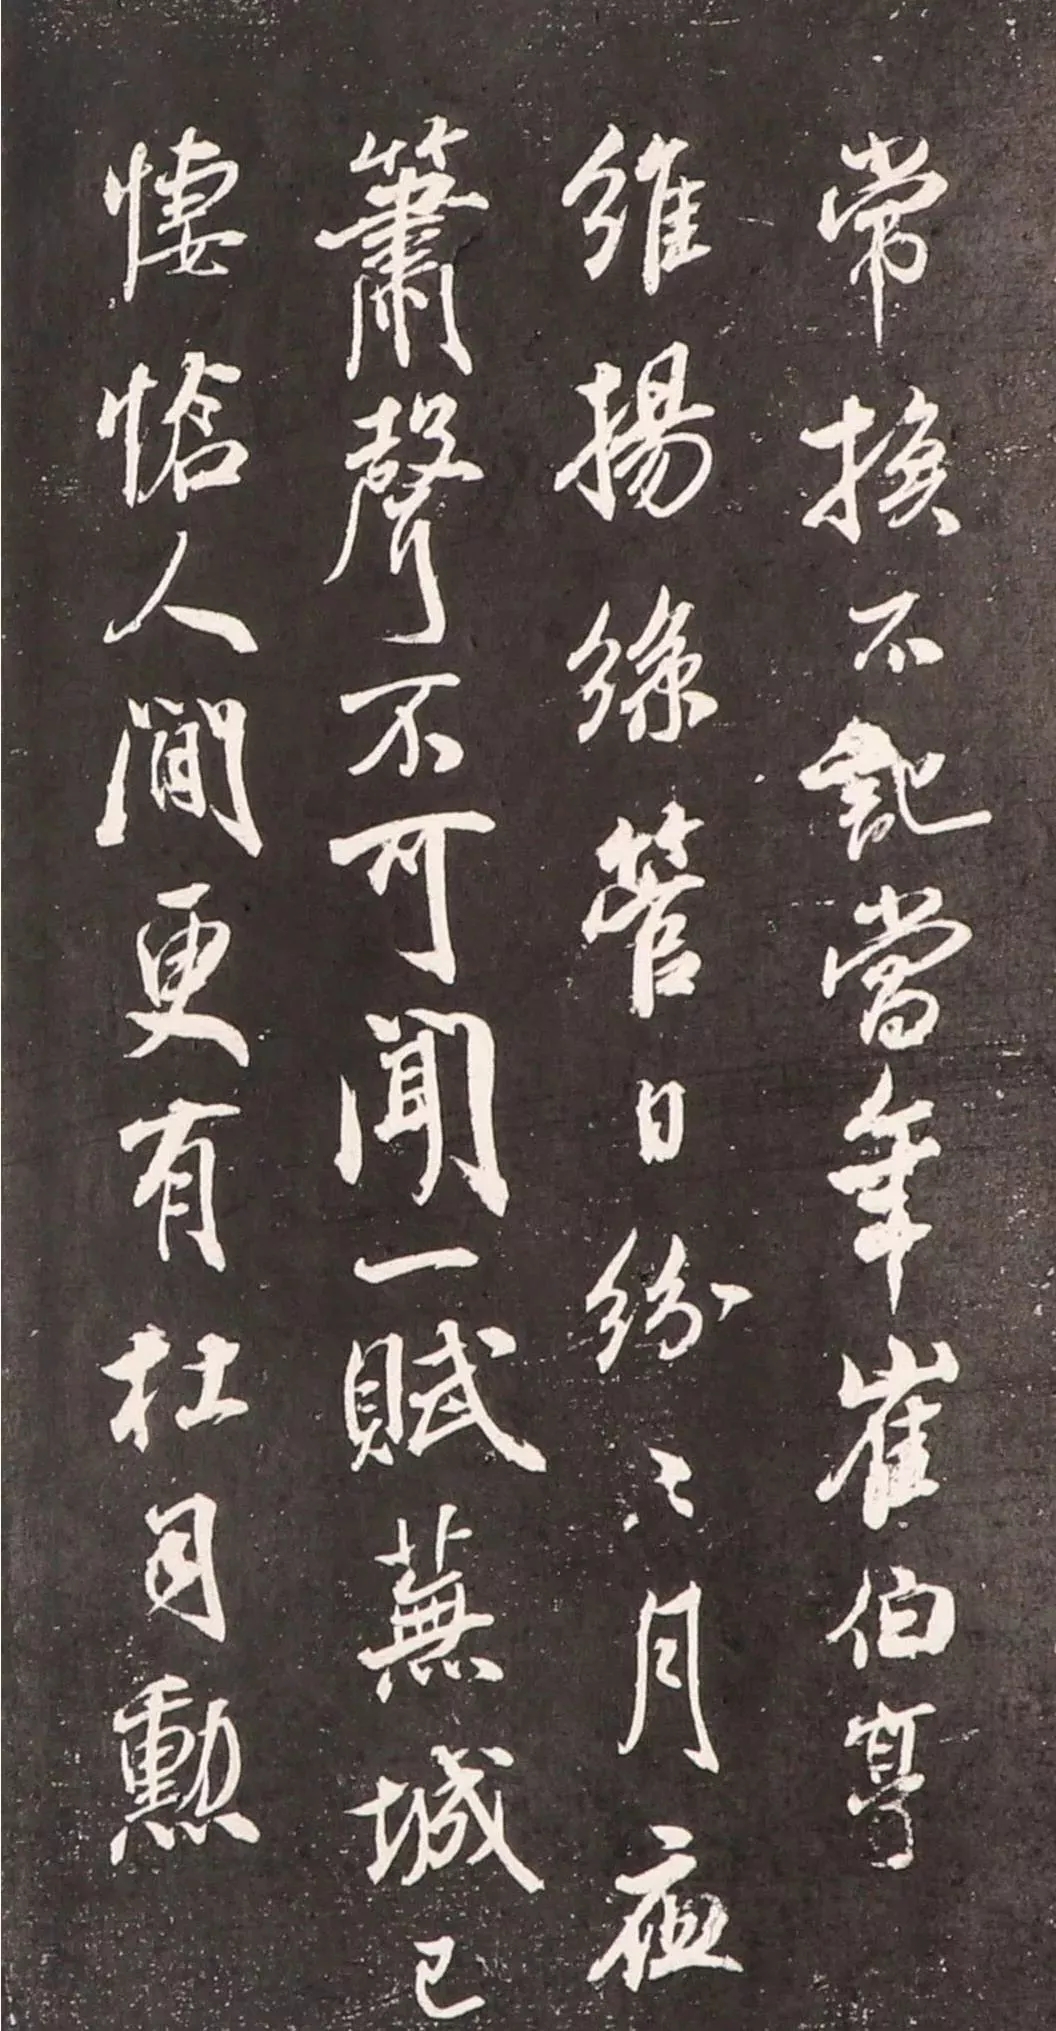 常換不記當年崔伯亭
維揚絲管日紛〻月夜
簫聲不可聞一賦蕪城已
悽愴人間更有杜司勳